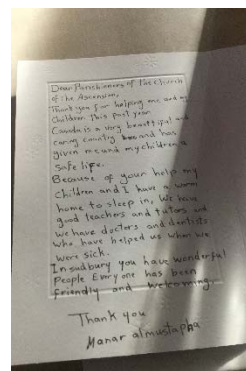 Dear Parishioners of the Church
of the Ascension,
Thank you for helping me and my
children this past year
Canada is a very beautiful and
caring country and has
given me and my children a
safe life.
Because of your help my
children and I have a warm
home to sleep in, We have
good teachers and tutors and
we have doctors and dentists
who have helped us when we
were sick.
In sudbury you have wonderful
people Everyone has been
friendly and welcoming.
Thank you
Manar almustapha